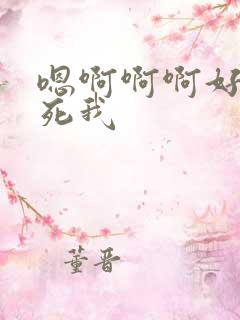 嗯啊啊啊好
死我
董晋